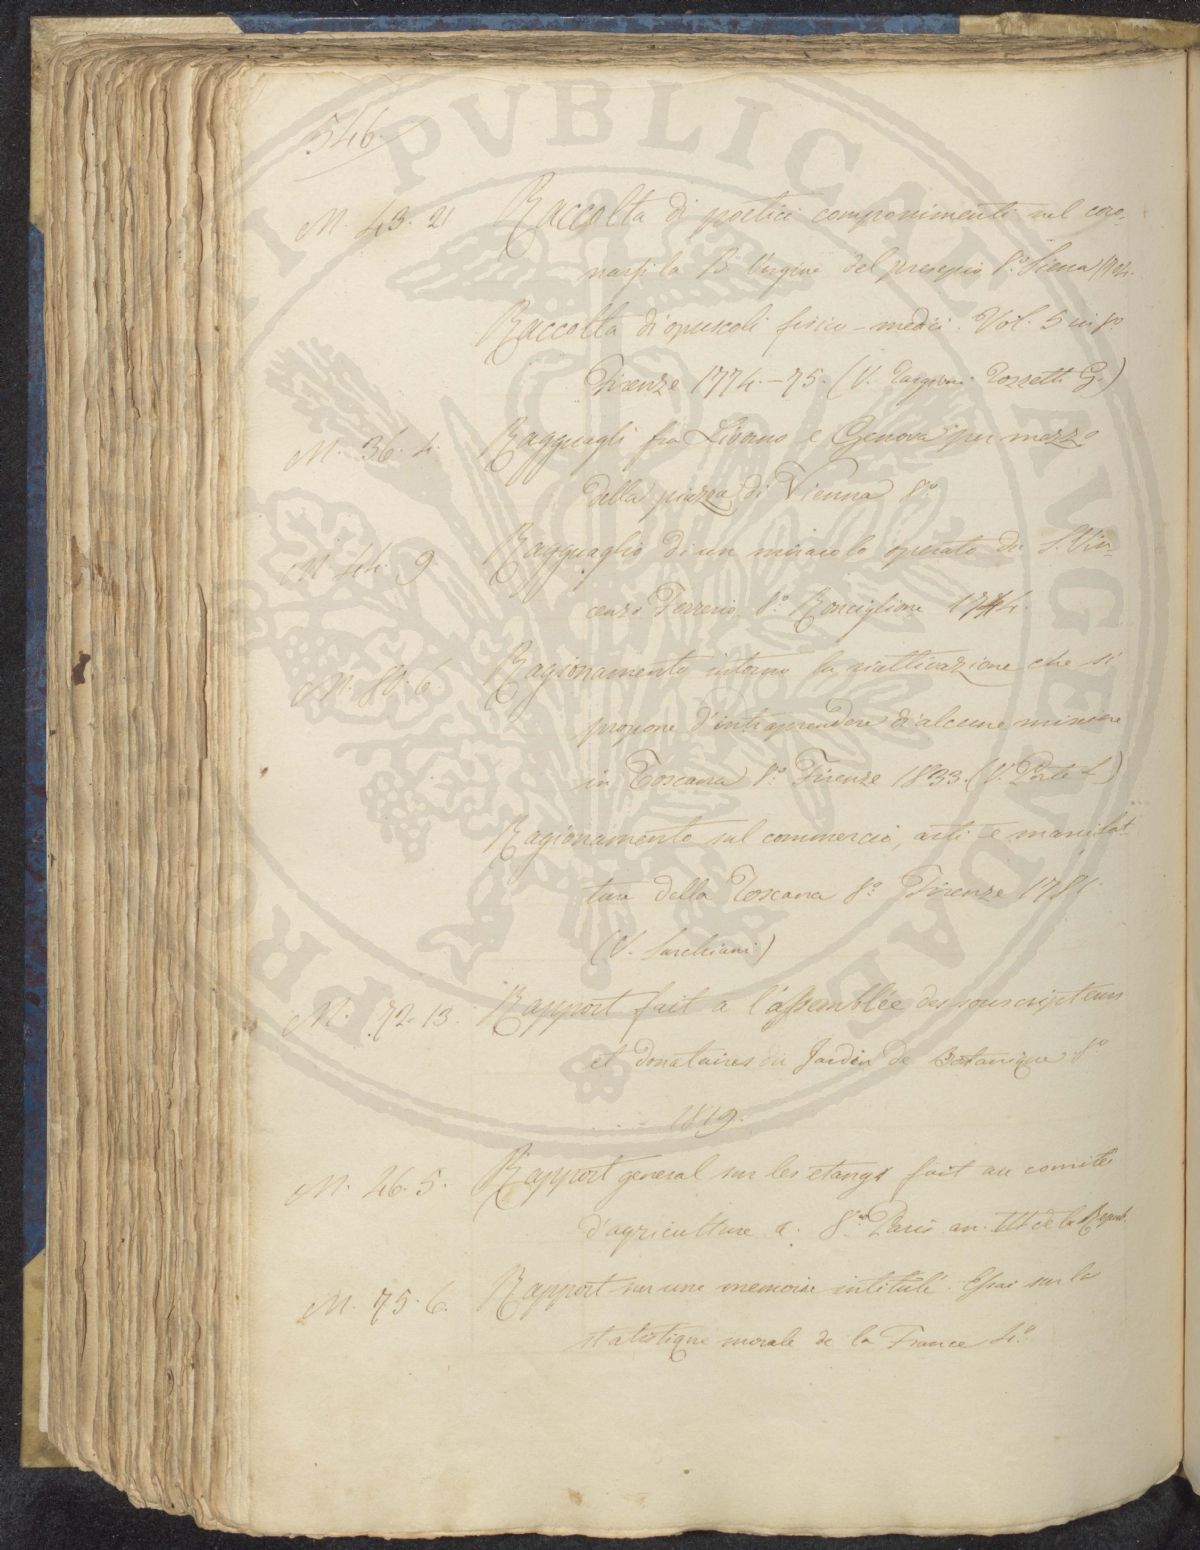 546.
M. 43. 21 Raccolta di poetici componimenti sul coro-
narsi la B. Vergine del presepio 8.° Siena
Raccolta d'opuscoli fisico-medici. Vol. 5 in 8°
Firenze 1774.-75. (V. Targioni Tozzetti G.)
M. 36. 4. Ragguagli fra Livorno e Genova per mezzo
della piazza di Vienna 8.°
M. 44. 9. Ragguaglio di un miracolo operato da S. Vin-
cenzo Ferrerio 8.° Ronciglione 1744.
M. 80. 6. Ragionamento intorno la riattivazione che si
propone d'intraprendere di alcune miniere
in Toscana 8.° Firenze 1833. (V. Porte L)
Ragionamento sul commercio, arti e manifat-
ture della Toscana 8.° Firenze 1781.
(V. Sarchiani)
M. 72. 13. Rapport fait a l'assemblée des souscripteurs
et donataires du Jardin de Botanique 8.°
1819.
M. 46. 5. Rapport general sur les etangs fait au comité
d'agriculture &. 8.° Paris an. III de la Repub.
M. 75. 6. Rapport sur une memoire intitulé. Essai sur la
statistique morale de la France 4.°
PVBLICAE AVGENDAE